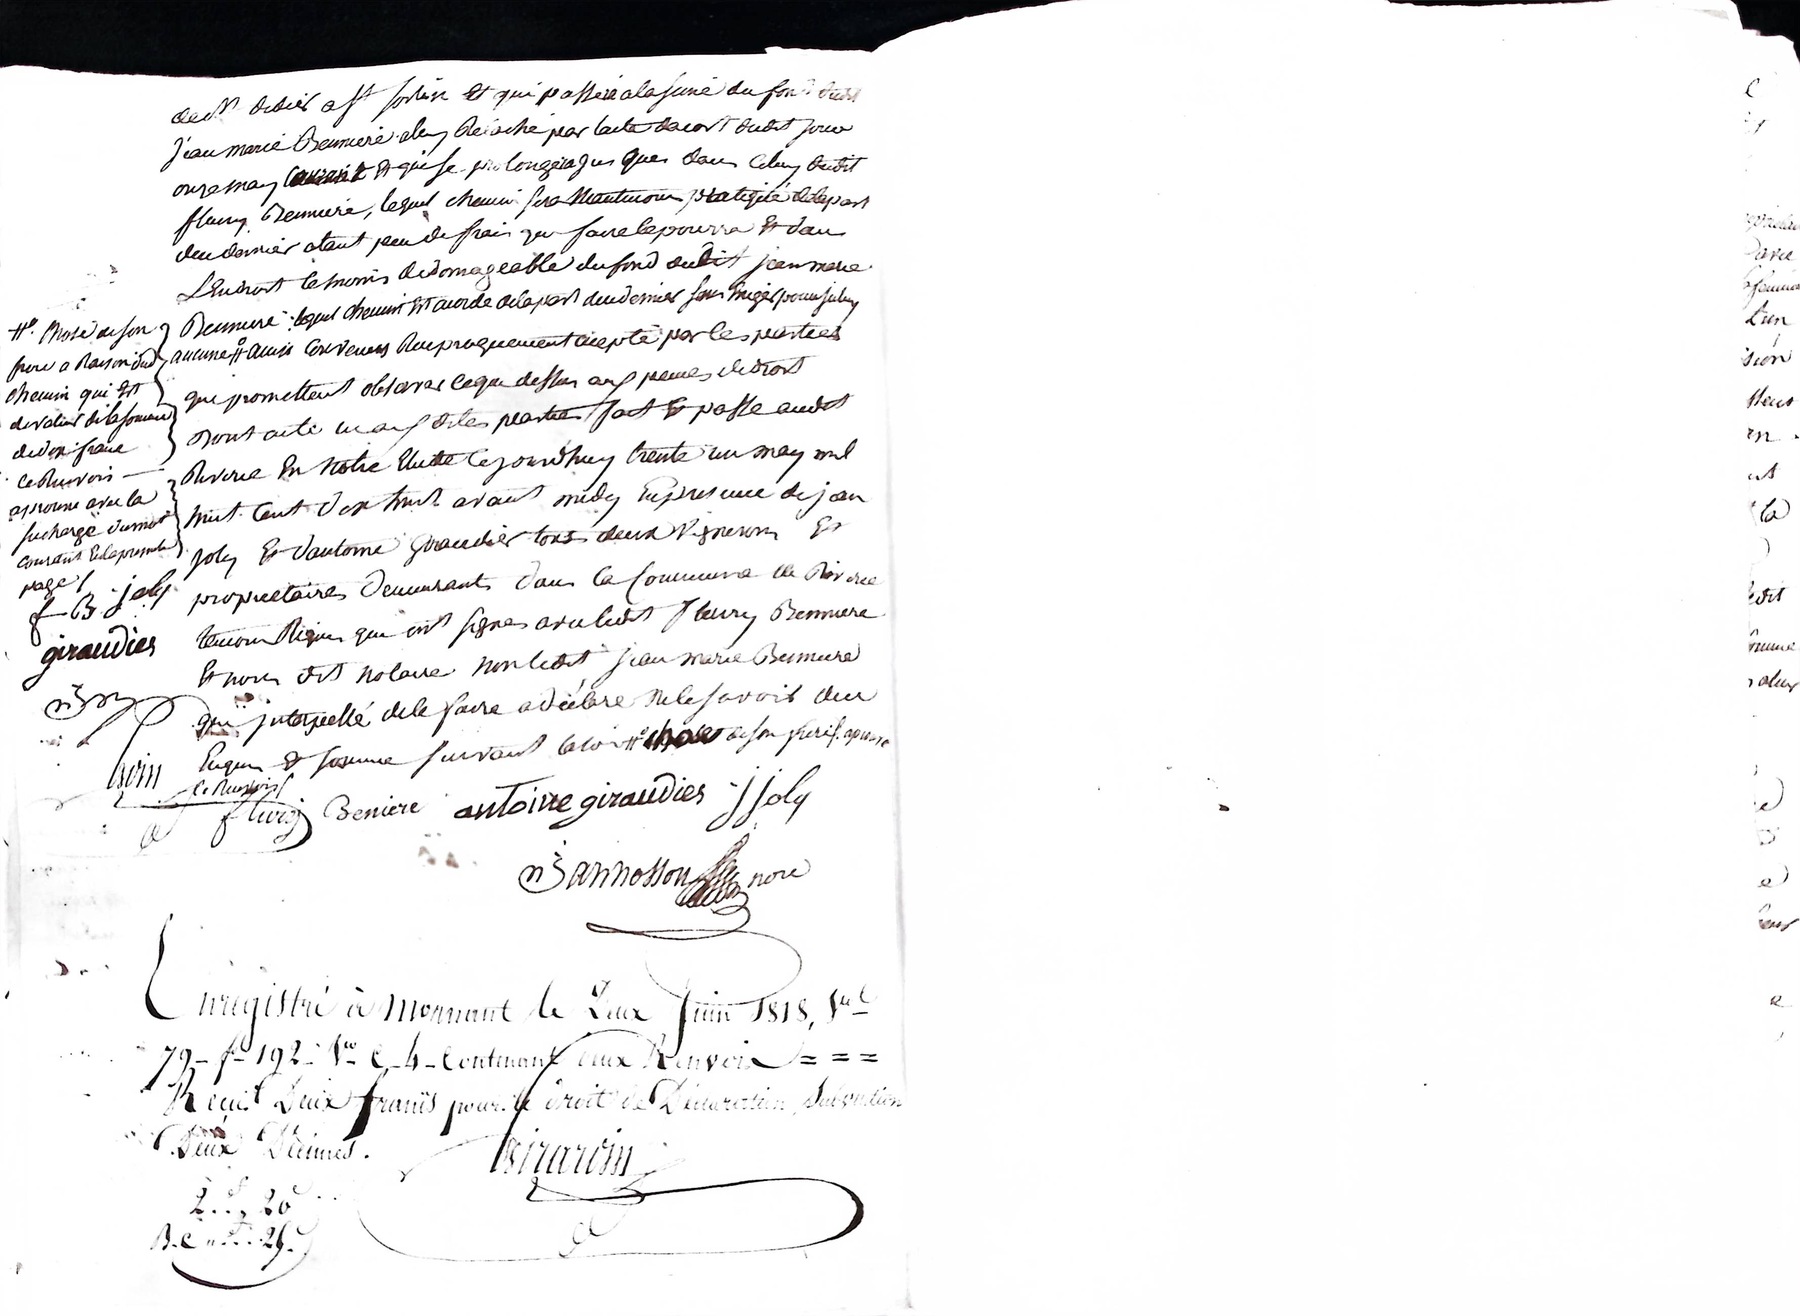 de Mr didier a st sorlin Et qui passera a la sime du fond dudit
jean marie Benniere a luy Relaché par lacte dacort dudit jour
onze may courant Et qui se prolongera jus ques dans celuy dudit
fleury Benniere, lequel chemin sera maintenu pratiqué de la part
du dernier a tant peu de frais que faire le pourra Et dans
L'Endroit le moins dedomageable du fond dudit jean marie
Benniere lequel chemin Est acordé de la part du dernier sans Exiger pour seluy
aucune # ainsi convenus Reciproquement accepté par les parties
qui promettent observer ce que dessus aux peines de droit
dont acte aux dites parties fait Et passé audit
Riverie En notre Etude ce jourd'huy trente un may mil
huit cent dix huit avant midy En presence de jean
joly Et d'antoine giraudier tous deux Vignerons Et
proprietaires demeurants dans la commune de Riverie
temoins Requis qui ont signes avec ledit fleury Benniere
Et nous dit notaire non ledit jean marie Benniere
qui interpellé de le faire a déclaré ne le savoir de ce
Enquis Et sommé suivant la loi # chose de son frere
#. chose de son
frere a Raison dud
chemin qui Est
de valeur de la somme
de dix francs
ce Renvois
aprouvé avec la
surcharge du mot
courant de la premiere
page
f B. j joly
giraudier
ce Renvois
fleury Beniere antoine giraudier j joly
Bannosson nore
Enregistré à Mornant le Deux Juin 1818, Vol
79 - fo 192 - Vo C. 4 - Contenant deux Renvois = = =
Reçu Deux francs pour le droit de Déclaration, Subvention
Deux Décimes.
Girardin
2.. 20